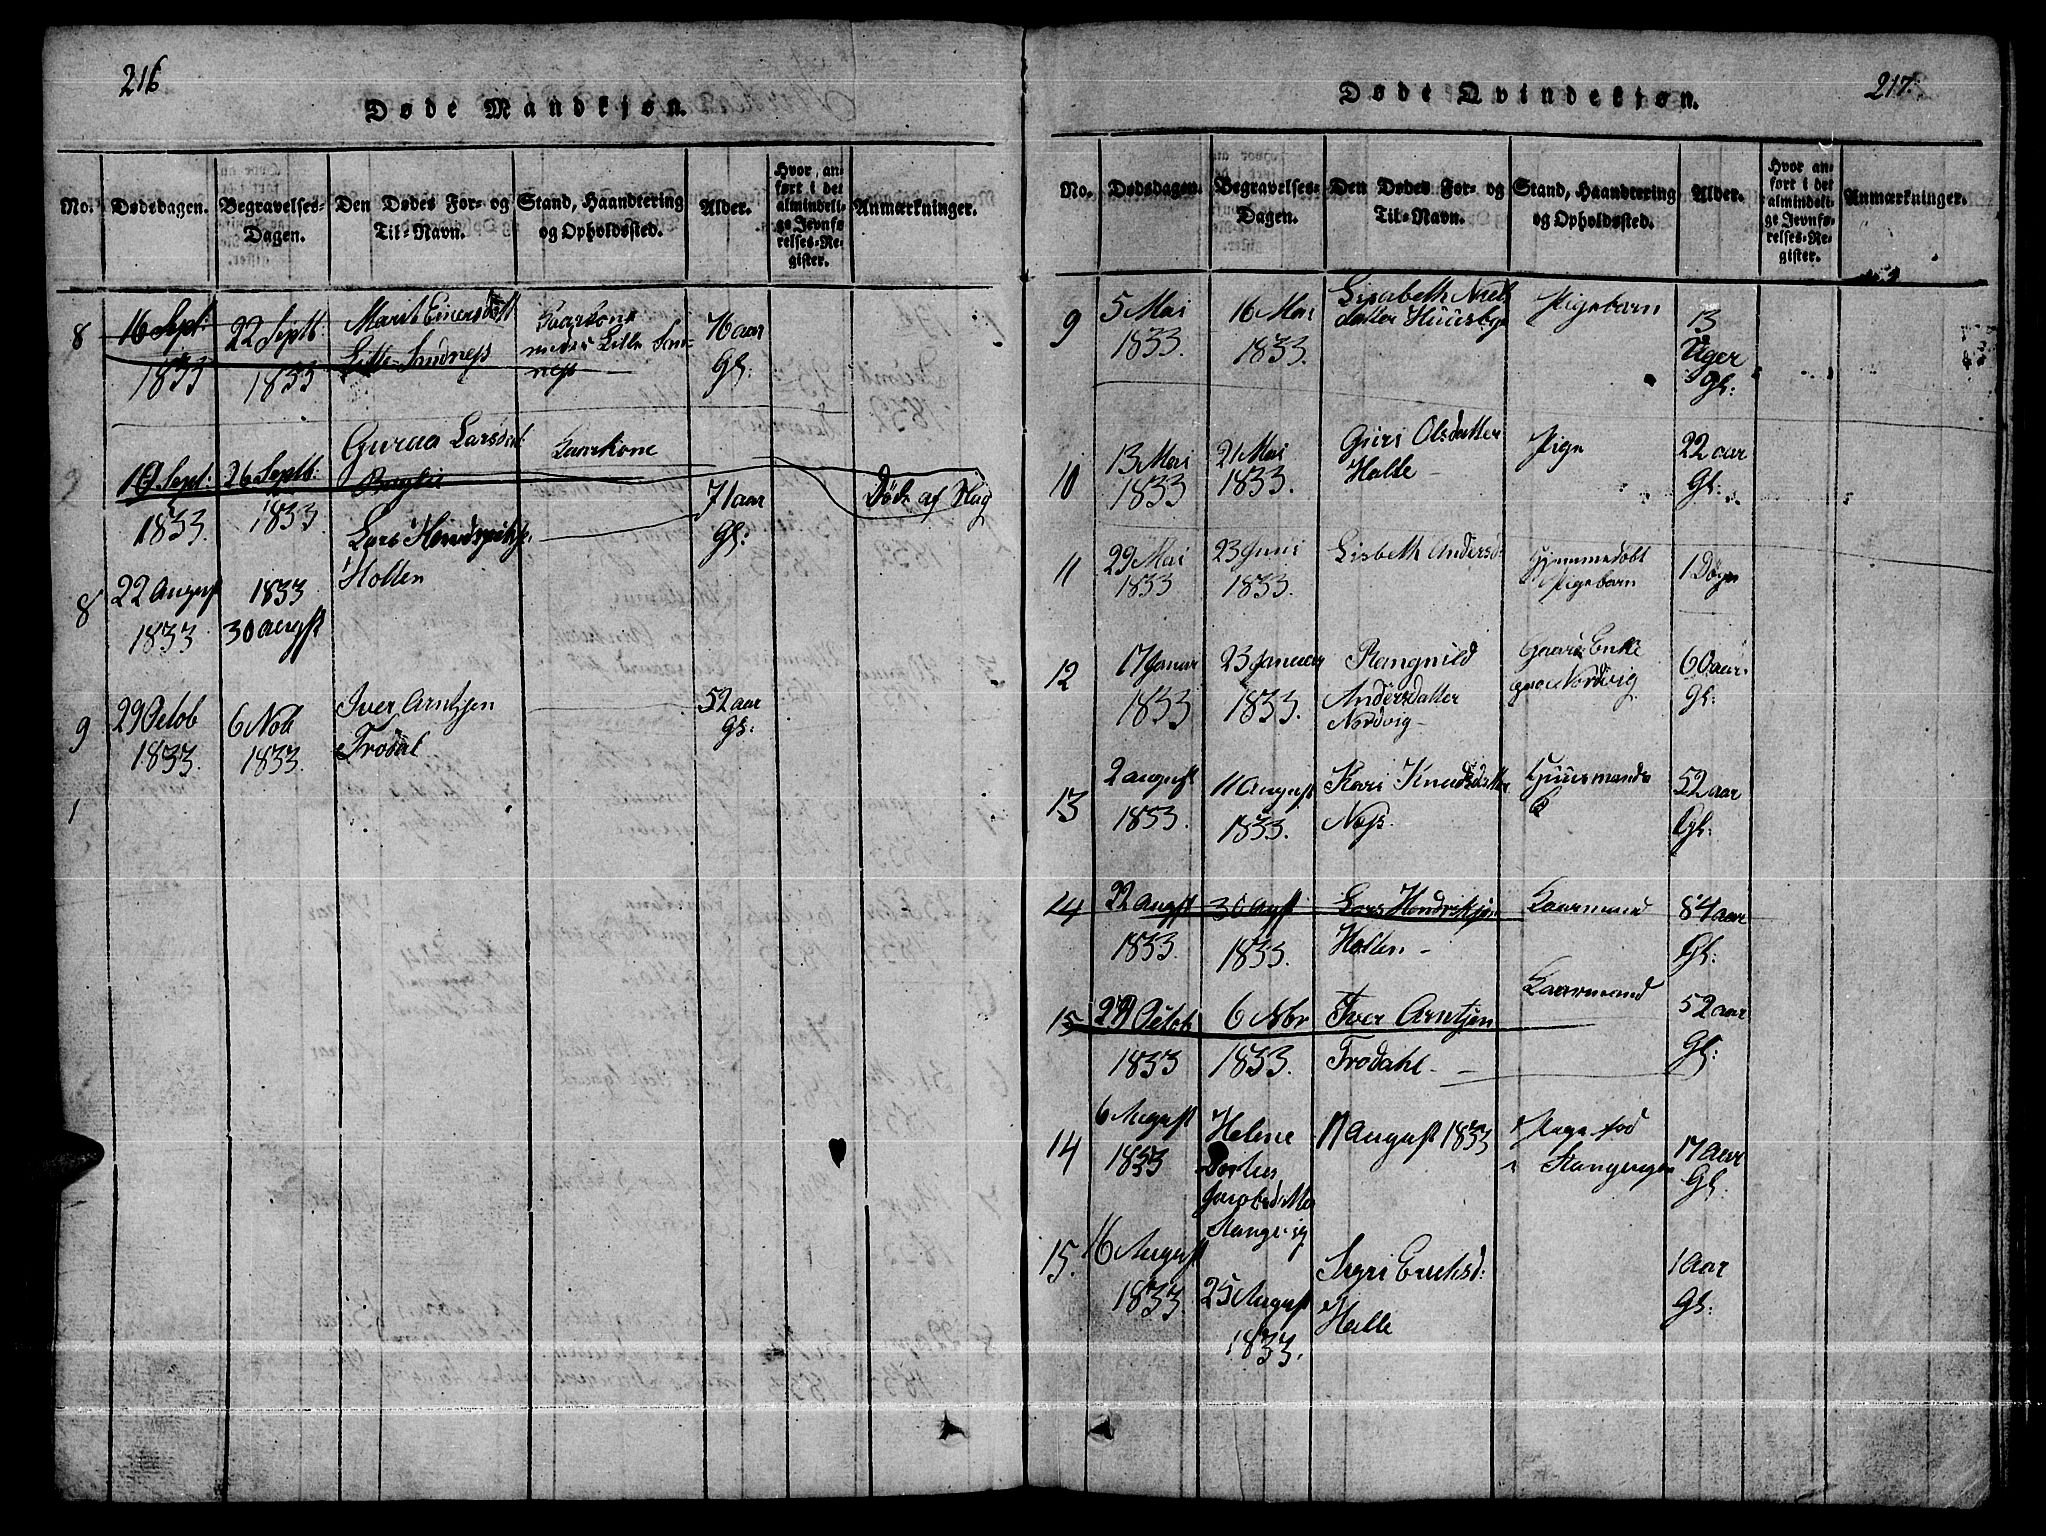 216
Døde Mandkjøn.
No. Dødsdagen. Begravelses-Dagen. Den Dødes For- og Til-Navn. Stand, Haandtering og Opholdssted. Alder. Hvor anført i det almindelige Jevnførelses-Register. Anmærkninger.
8 16 Sept: 22 Septb: Marit Einersdatt 76 aar
1833 1833 Lille Sandness under Lille Gl:
19 Sept: 26 Septb: Guraa Larsdat Kaarkone 71 aar Døde af Slag
1833. 1833 Gl:
8 22 August 1833 Lars Hendriks.
1833 30 Augst Holten
9 29 Octob 6 Nob Iver Arntsen 52 aar
1833. 1833. Trodal Gl:
1
217.
Døde Qvindekjøn.
No. Dødsdagen. Begravelses-Dagen. Den Dødes For- og Til-Navn. Stand, Haandtering og Opholdssted. Alder. Hvor anført i det almindelige Jevnførelses-Register. Anmærkninger.
9 5 Mai 16 Mai Lisabeth Niels Pigebarn 13
1833. 1833. datter Huusbye Uger
Gl:
10 13 Mai 21 Mai Guri Olsdatter Pige 22 aar
1833 1833. Halle Gl:
11 29 Mai 23 Juni Lisbeth Andersd Hjemmedøbt 1 Døgn
1833 1833. Pigebarn
12 17 Januar 23 Januar Rangnild Gaard Enke 60 aar
1833 1833. Andersdatter Nordvig Gl:
Nordvig
13 2 August 11 August Kari Knudsdatter Huusmands 52 aar
1833. 1833. Næss. Gl:
14 22 Augst 30 Agst Lars Hendriksen Kaarmand 84 aar
1833. 1833. Holten Gl:
15 29 Octob 6 Nbr Iver Arntsen Kaarmand 52 aar
1833 1833. Trodahl Gl:
14 6 August Helene 17 August 1833 Pige fød 17 aar
1833 Dorthea Stangvigen Gl:
Jacobsdatter
Stangvig
15. 16 August Sigri Erichsd: 1 aar
1833 25 August Halle Gl:
1833.